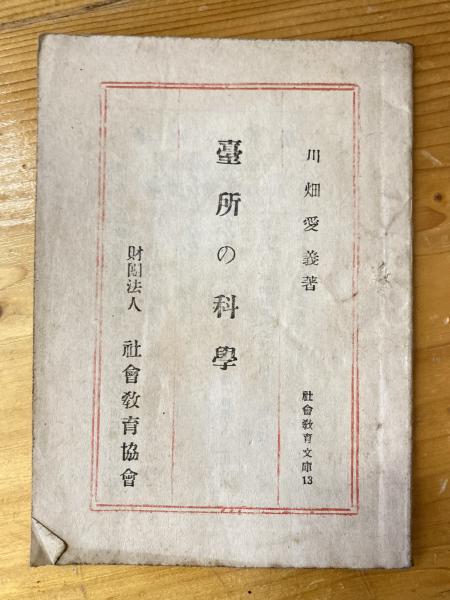 川畑愛義著
社會教育文庫13
臺所の科學
財團法人 社會教育協會